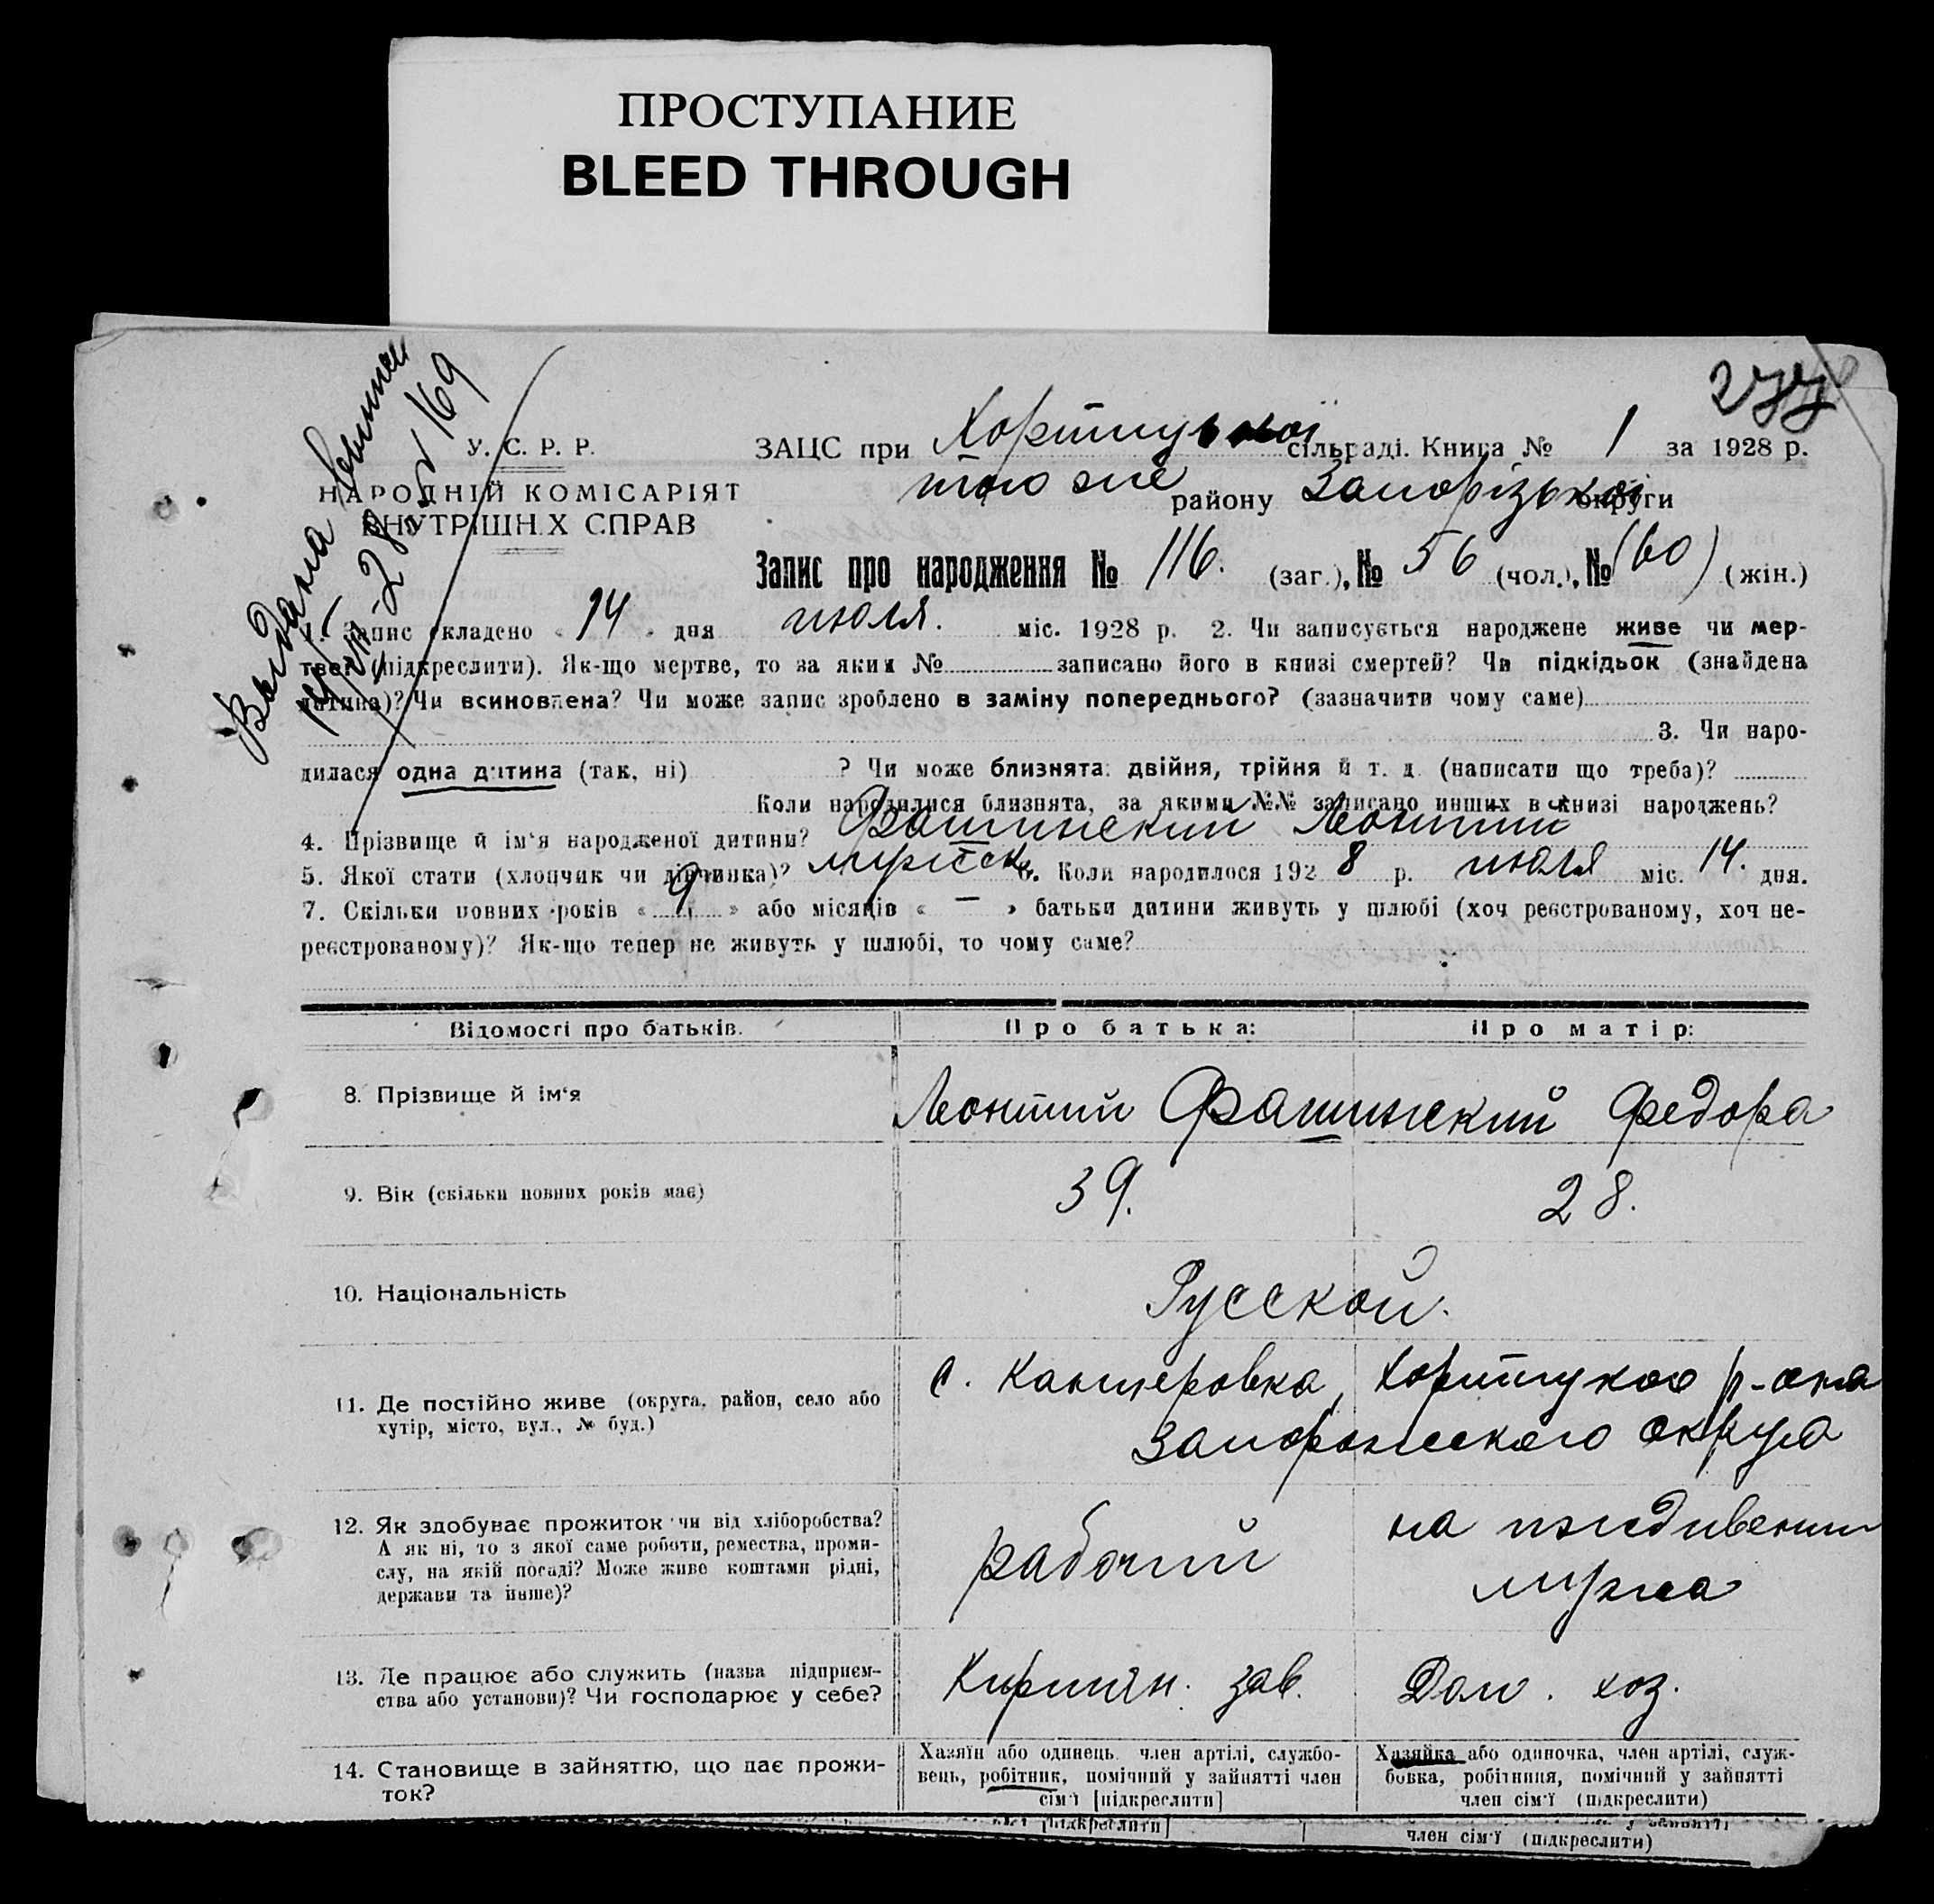 ПРОСТУПАНИЕ
BLEED THROUGH
277
Выдана
У. С. Р. Р.
НАРОДНІЙ КОМІСАРІЯТ
ВНУТРІШН.Х СПРАВ
ЗАЦС при Хортицької сільраді. Книга № 1 за 1928 р.
того же району Запорізької округи
Запис про народження № 116. (заг.), № 56 (чол.), № (60) (жін.)
1. Запис складено « 14 » дня июля. міс. 1928 р. 2. Чи записується народжене живе чи мер-
тве? (підкреслити). Як-що мертве, то за яким № записано його в книзі смертей? Чи підкідьок (знайдена
дитина)? Чи всиновлена? Чи може запис зроблено в заміну попереднього? (зазначити чому саме)
3. Чи наро-
дилася одна дитина (так, ні) ? Чи може близнята: двійня, трійня й т. д. (написати що треба)?
Коли народилися близнята, за якими №№ записано инших в книзі народжень?
4. Прізвище й ім‘я народженої дитини? Фашинский Леонтий
5. Якої стати (хлопчик чи дівчинка)? мужеск. 6. Коли народилося 1928 р. июля міс. 14. дня.
7. Скільки повних років « 9 » або місяців « — » батьки дитини живуть у шлюбі (хоч реєстрованому, хоч не-
реєстрованому)? Як-що тепер не живуть у шлюбі, то чому саме?
Відомості про батьків. Про батька: Про матір:
8. Прізвище й ім‘я Леонтий Фашинский Федора
9. Вік (скільки повних років має) 39. 28.
10. Національність Русской.
11. Де постійно живе (округа, район, село або
хутір, місто, вул., № буд.)
с. Канцеровка, Хортицкого р-она
Запорожского округа
12. Як здобуває прожиток чи від хліборобства?
А як ні, то з якої саме роботи, ремества, проми-
слу, на якій посаді? Може живе коштами рідні,
держави та инше)?
рабочий
на иждивении
мужа
13. Де працює або служить (назва підприєм-
ства або установи)? Чи господарює у себе?
Кирпичн. зав. Дом. хоз.
14. Становище в зайняттю, що дає прожи-
ток?
Хазяїн або одинець член артілі, службо-
вець, робітник, помічний у зайнятті член
сім‘ї [підкреслити]
Хазяйка або одиночка, член артілі, служ-
бовка, робітниця, помічний у зайнятті
член сім‘ї (підкреслити)
[підкреслити]
у зайнятті
член сім‘ї (підкреслити)